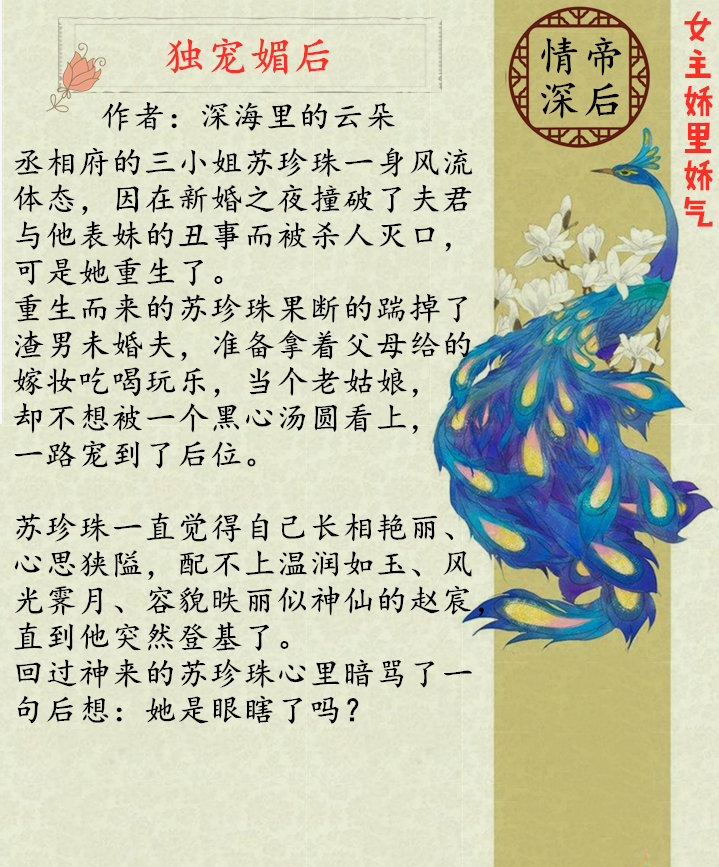 独宠媚后
作者：深海里的云朵
丞相府的三小姐苏珍珠一身风流
体态，因在新婚之夜撞破了夫君
与他表妹的丑事而被杀人灭口，
可是她重生了。
重生而来的苏珍珠果断的踹掉了
渣男未婚夫，准备拿着父母给的
嫁妆吃喝玩乐，当个老姑娘，
却不想被一个黑心汤圆看上，
一路宠到了后位。
苏珍珠一直觉得自己长相艳丽、
心思狭隘，配不上温润如玉、风
光霁月、容貌昳丽似神仙的赵宸，
直到他突然登基了。
回过神来的苏珍珠心里暗骂了一
句后想：她是眼瞎了吗？
帝后
情深
女主娇里娇气